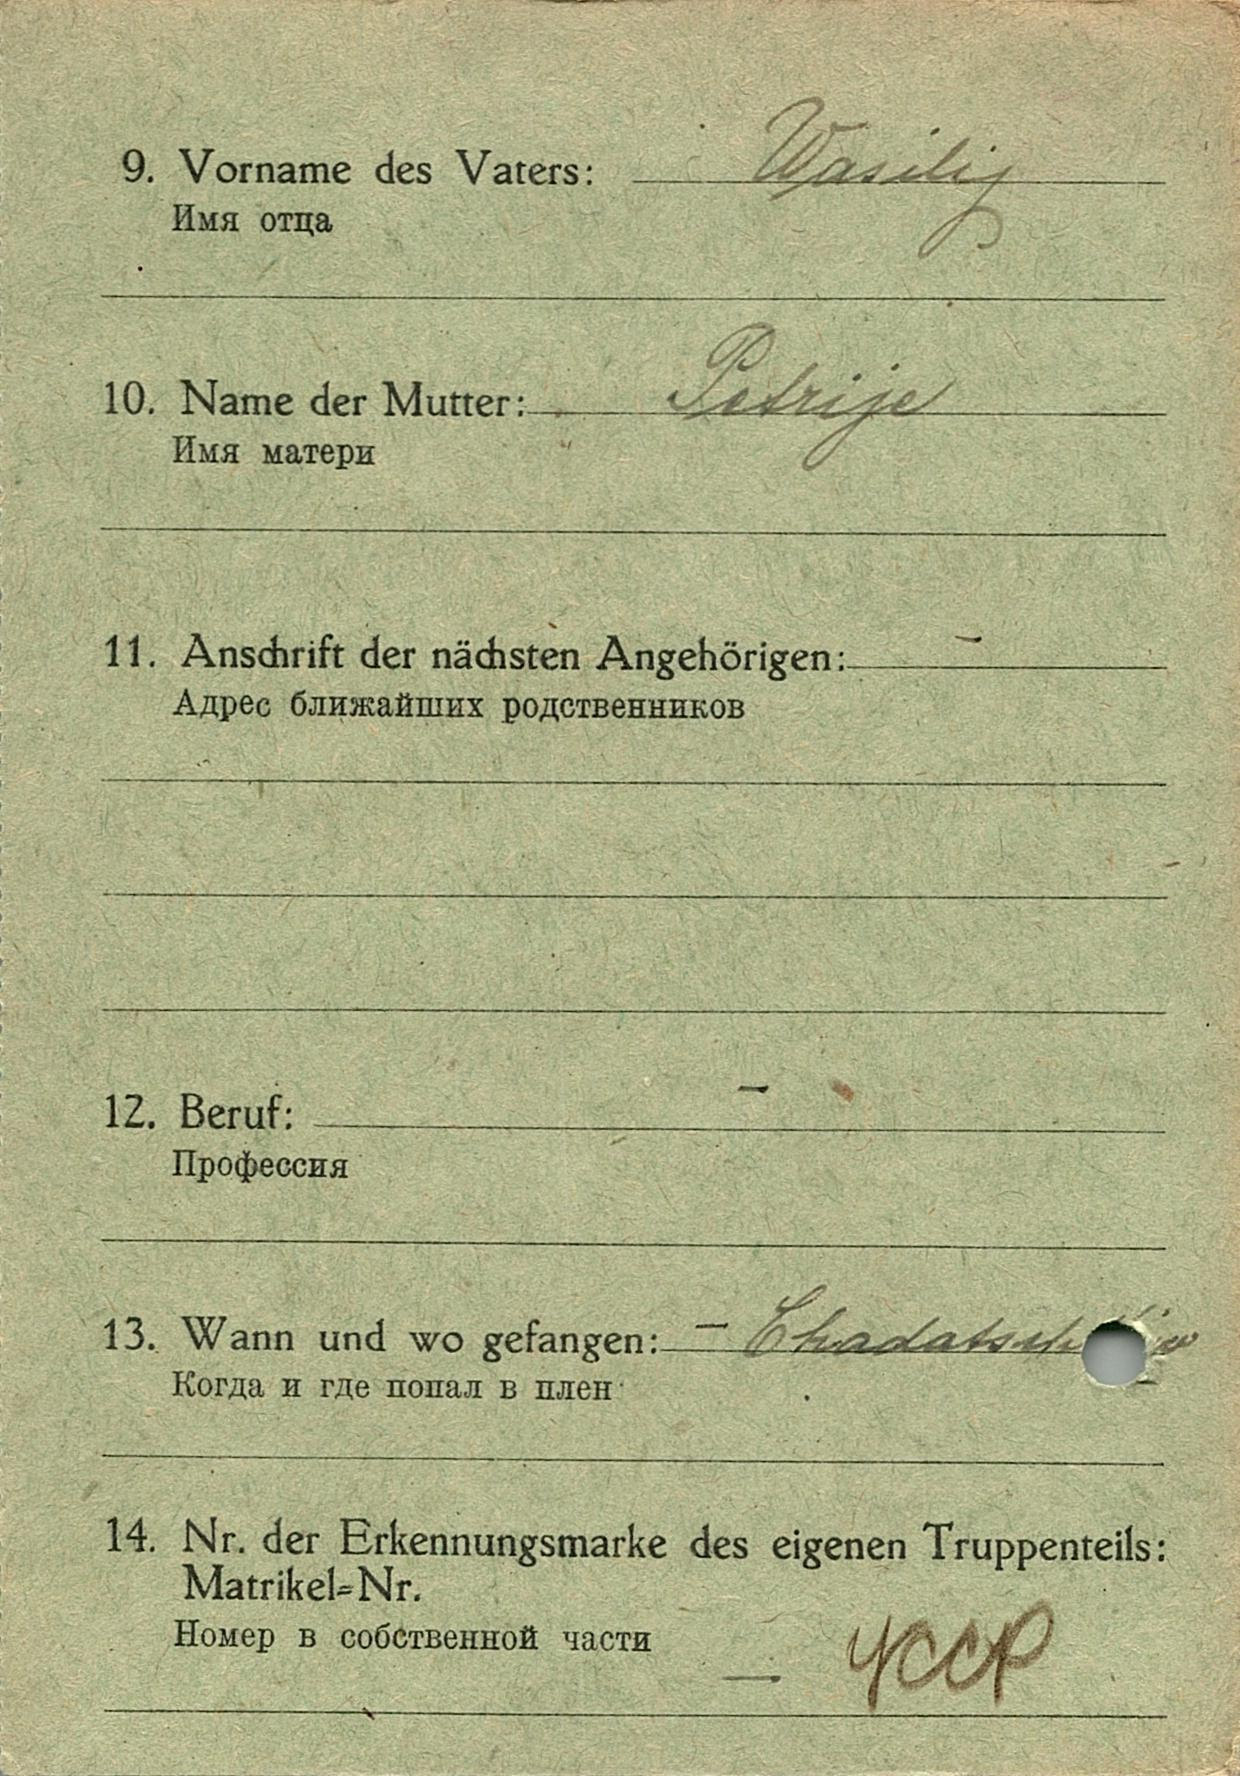 9. Vorname des Vaters: Wasilij
Имя отца
10. Name der Mutter: Petrije
Имя матери
11. Anschrift der nächsten Angehörigen: -
Адрес ближайших родственников
12. Beruf: -
Профессия
13. Wann und wo gefangen: -
Когда и где попал в плен
14. Nr. der Erkennungsmarke des eigenen Truppenteils:
Matrikel=Nr.
Номер в собственной части
- УССР